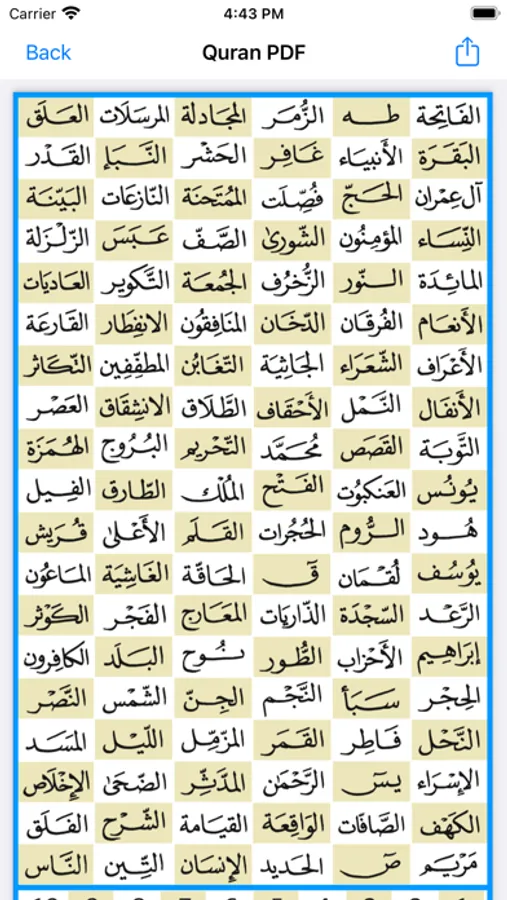 Carrier 4:43 PM
Back Quran PDF
الفَاتِحَة طه الزُّمَر المجَادلة المرسَلَات العَلَق
البَقَرَة الأَنبيَاء غَافِر الحَشْر النَّبَإ القَدْر
آل عِمرَان الحَجّ فُصِّلَت المُمْتَحنَة النّازعَات البَيّنَة
النِّسَاء المؤمِنُون الشّورىٰ الصَّفّ عَبَسَ الزّلْزَلة
المَائِدَة النّور الزُّخرُف الجُمعَة التَّكوير العَاديَات
الأنعَام الفُرقَان الدّخَان المنَافِقُون الانفِطَار القَارعَة
الأعْرَاف الشّعَرَاء الجَاثِيَة التّغَابُن المطَفِّفِين التّكَاثر
الأَنفَال النَّمْل الأَحْقَاف الطَّلَاق الانشِقَاق العَصْر
التَّوبَة القَصَص مُحَمَّد التّحْريم البُرُوج الهُمَزَة
يُونُس العَنكبُوت الفَتْح المُلْك الطّارق الفِيل
هُود الرُّوم الحُجُرات القَلَم الأَعْلىٰ قُرَيش
يُوسُف لُقمَان قٓ الحَاقّة الغَاشِيَة المَاعُون
الرَّعْد السّجْدَة الذّاريَات المعَارج الفَجْر الكَوْثر
إبرَاهِيم الأَحْزاب الطُّور نُوح البَلَد الكافِرون
الحِجْر سَبَأ النَّجْم الجِنّ الشّمْس النَّصْر
النَّحْل فَاطِر القَمَر المزّمِّل اللّيْل المَسَد
الإسْرَاء يسٓ الرَّحْمٰن المدَّثِّر الضّحَىٰ الإخْلَاص
الكَهْف الصَّافات الوَاقِعَة القيَامة الشّرْح الفَلَق
مَريَم صٓ الحَديد الإنْسَان التِّين النَّاس